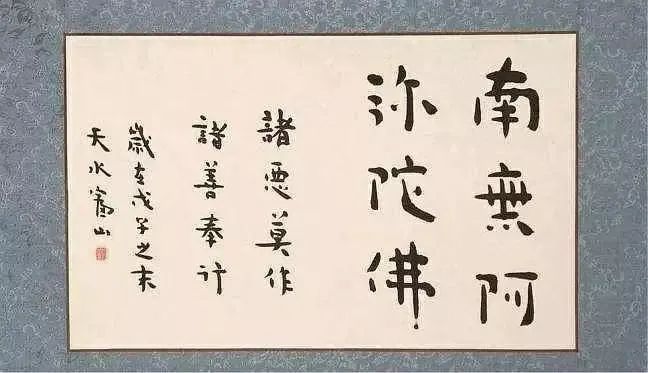 南無阿
弥陀佛
諸悪莫作
諸善奉行
歳在戊子之末
天水富山